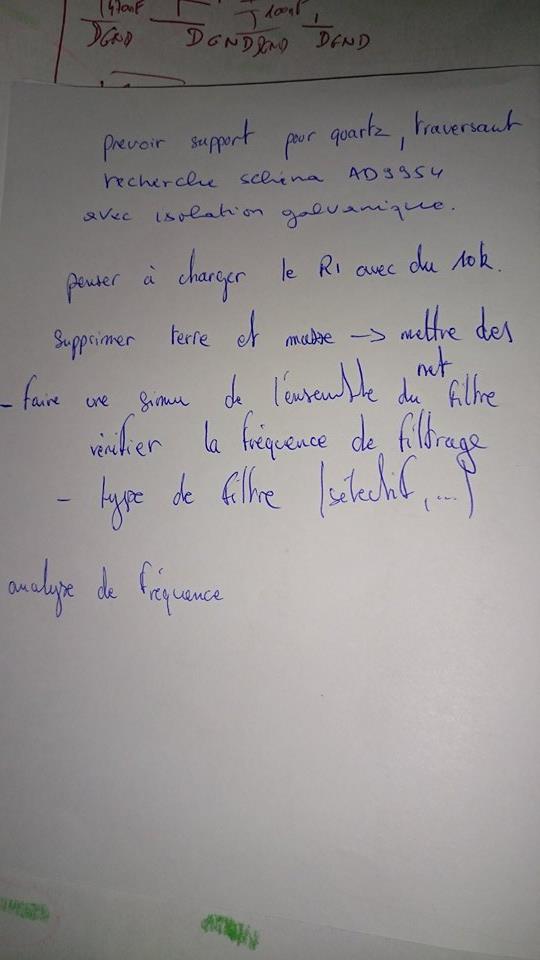 470nF
100nF
DGND DGND DGND DGND
prevoir support pour quartz, traversant
recherche schéma AD9954
avec isolation galvanique.
penser à charger le R1 avec du 10k.
supprimer terre et masse → mettre des
net
- faire une simu de l'ensemble du filtre
vérifier la fréquence de filtrage
- type de filtre (sélectif, ...)
analyse de fréquence